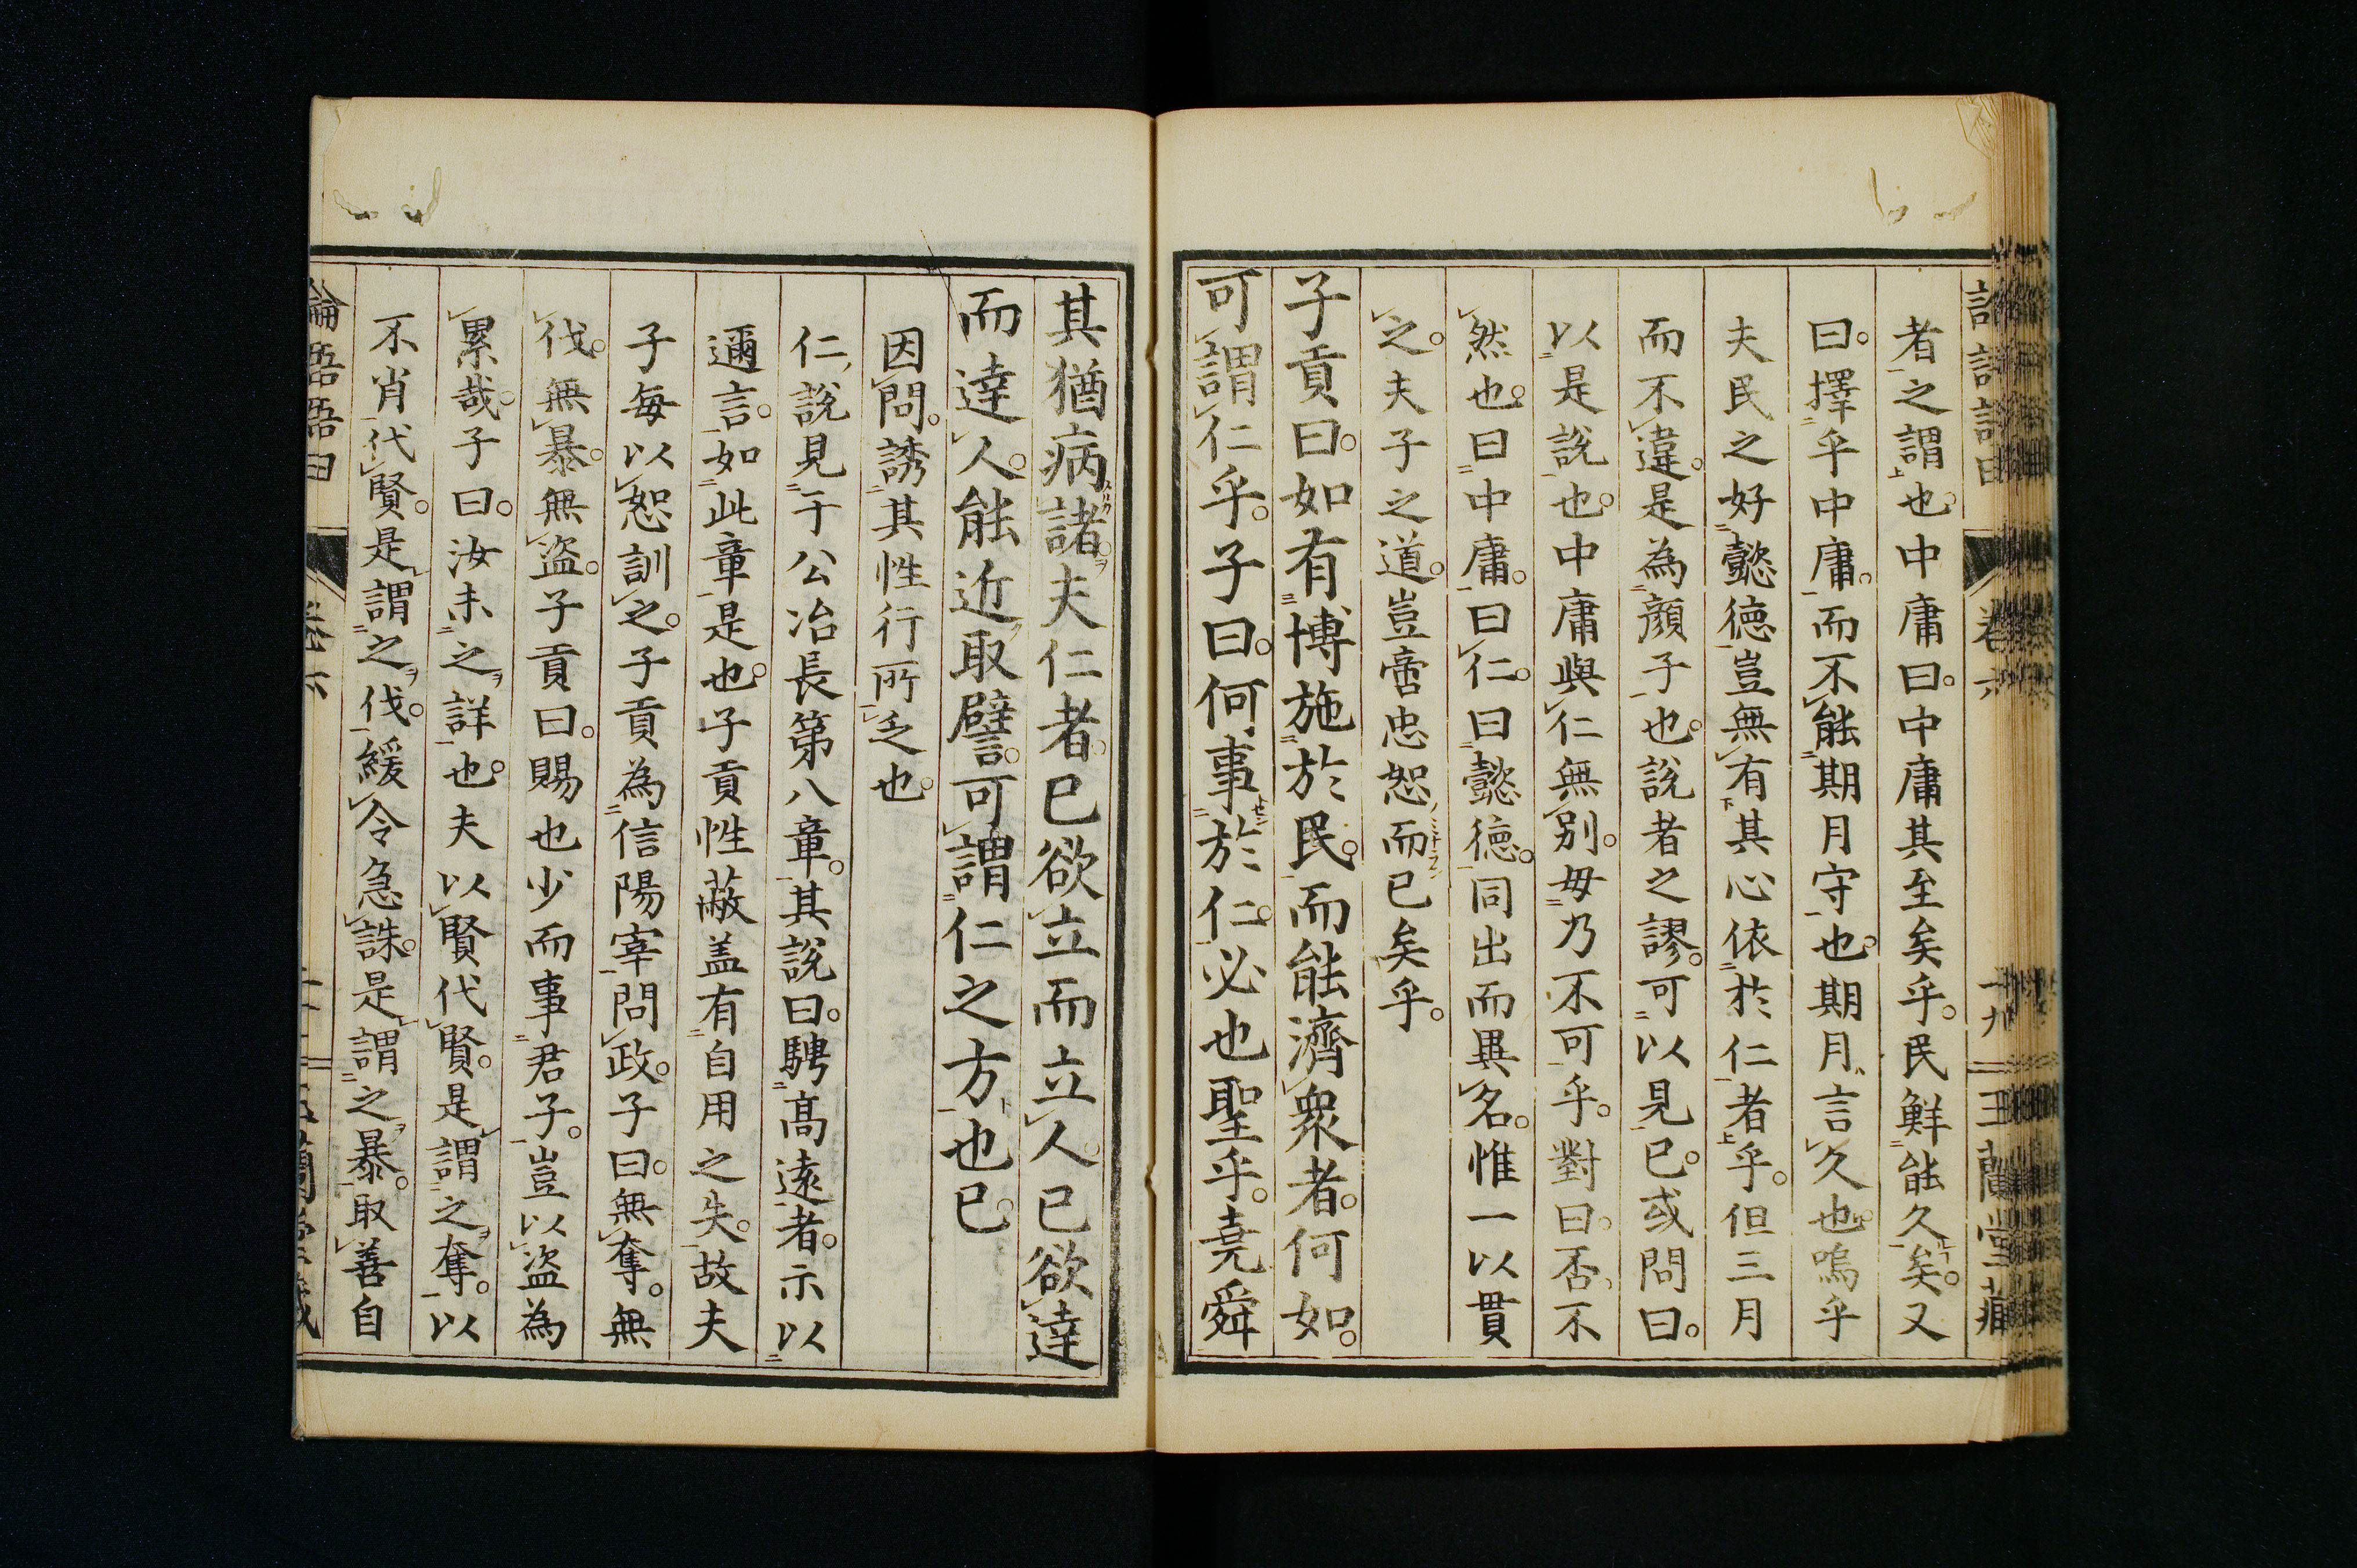 者之謂也中庸曰中庸其至矣乎民鮮能久矣又
曰擇乎中庸而不能期月守也期月言久也嗚乎
夫民之好懿德豈無有其心依於仁者乎但三月
而不違是為顏子也說者之謬可以見已或問曰
以是說也中庸與仁無別毋乃不可乎對曰否不
然也曰中庸曰仁曰懿德同出而異名惟一以貫
之夫子之道豈啻忠恕而已矣乎
子貢曰如有博施於民而能濟衆者何如
可謂仁乎子曰何事於仁必也聖乎堯舜
其猶病諸夫仁者已欲立而立人已欲達
而達人能近取譬可謂仁之方也已
因問誘其性行所乏也
仁說見于公冶長第八章其說曰騁高遠者示以
邇言如此章是也子貢性蔽盖有自用之失故夫
子每以恕訓之子貢為信陽宰問政子曰無奪無
伐無暴無盜子貢曰賜也少而事君子豈以盜為
累哉子曰汝未之詳也夫以賢代賢是謂之奪以
不肖代賢是謂之伐緩令急誅是謂之暴取善自
論語語由
卷六